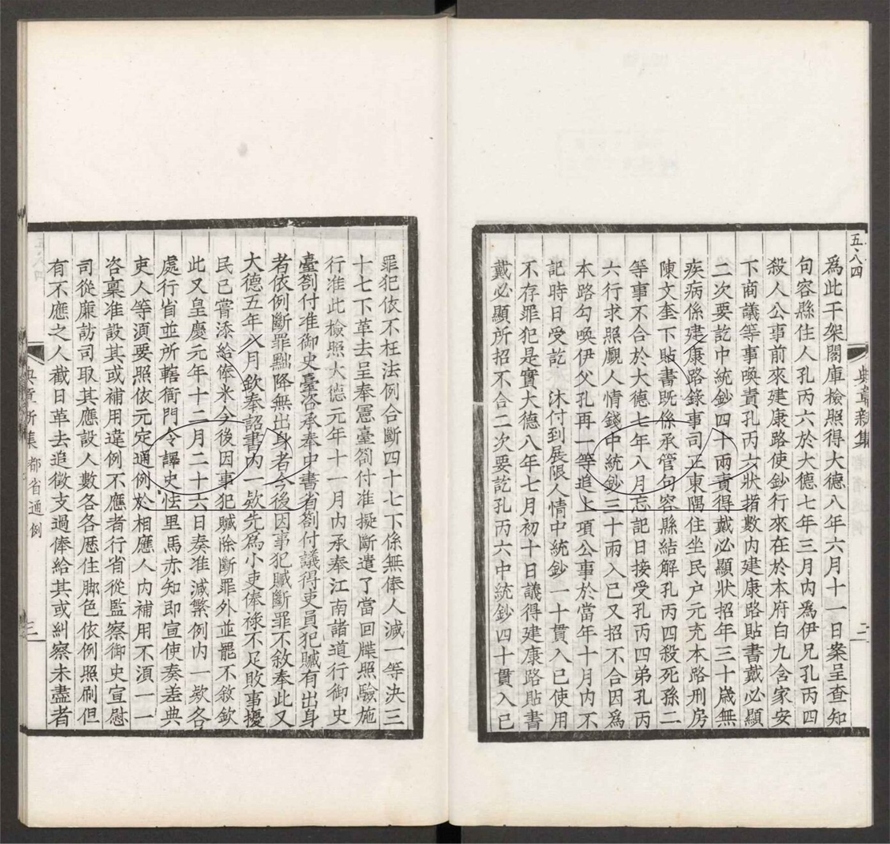 為此于架閣庫檢照得大德八年六月十一日案呈查知
句容縣住人孔丙六於大德七年三月內為伊兄孔丙四
殺人公事前來建康路使鈔行來在於本府白九舍家安
下商議等事喚責孔丙六狀指數內建康路貼書戴必顯
二次要訖中統鈔四十兩責得戴必顯狀招年三十歲無
疾病係建康路錄事司正東隅住坐民户元充本路刑房
陳文奎下貼書既係承管句容縣結解孔丙四殺死孫二
等事不合於大德七年八月忘記日接受孔丙四弟孔丙
六行求照覷人情錢中統鈔三十兩入己又招不合因為
本路勾喚伊父孔再一等追上項公事於當年十月內不
記時日受訖 沐付到展限人情中統鈔一十貫入己使用
不存罪犯是實大德八年七月初十日議得建康路貼書
戴必顯所招不合二次要訖孔丙六中統鈔四十貫入己
五八四
典章新集
二
罪犯依不枉法例合斷四十七下係無俸人減一等決三
十七下革去呈奉憲臺劄付准擬斷遣了當回牒照驗施
行准此檢照大德元年十一月內承奉江南諸道行御史
臺劄付准御史臺咨承奉中書省劄付議得吏員犯贓有出身
者依例斷罪黜降無出身者今後因事犯贓斷罪不敘奉此又
大德五年八月欽奉詔書內一款先為小吏俸祿不足敗事擾
民已嘗添給俸米今後因事犯贓除斷罪外並罷不敘欽
此又皇慶元年十二月二十六日奏准減繁例內一款各
處行省並所轄衙門令譯史怯里馬赤知即宣使奏差典
吏人等須要照依元定通例於相應人內補用不須一一
咨稟准設其或補用違例不應者行省從監察御史宣慰
司從廉訪司取其應設人數各各歷住脚色依例照刷但
有不應之人截日革去追徵支過俸給其或糾察未盡者
典章新集 都省通例
三